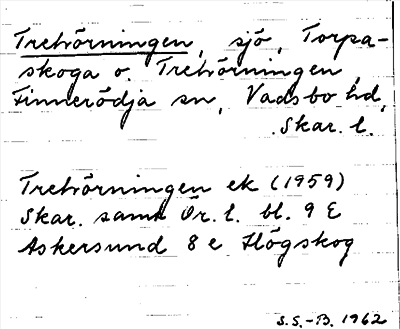 Trehörningen, sjö, Torpa-
skoga o. Trehörningen,
Finnerödja sn, Vadsbo hd,
Skar. l.
Trehörningen ek (1959)
Skar. samt Ör. l. bl. 9 E
Askersund 8 e Högskog
S.S.-B. 1962